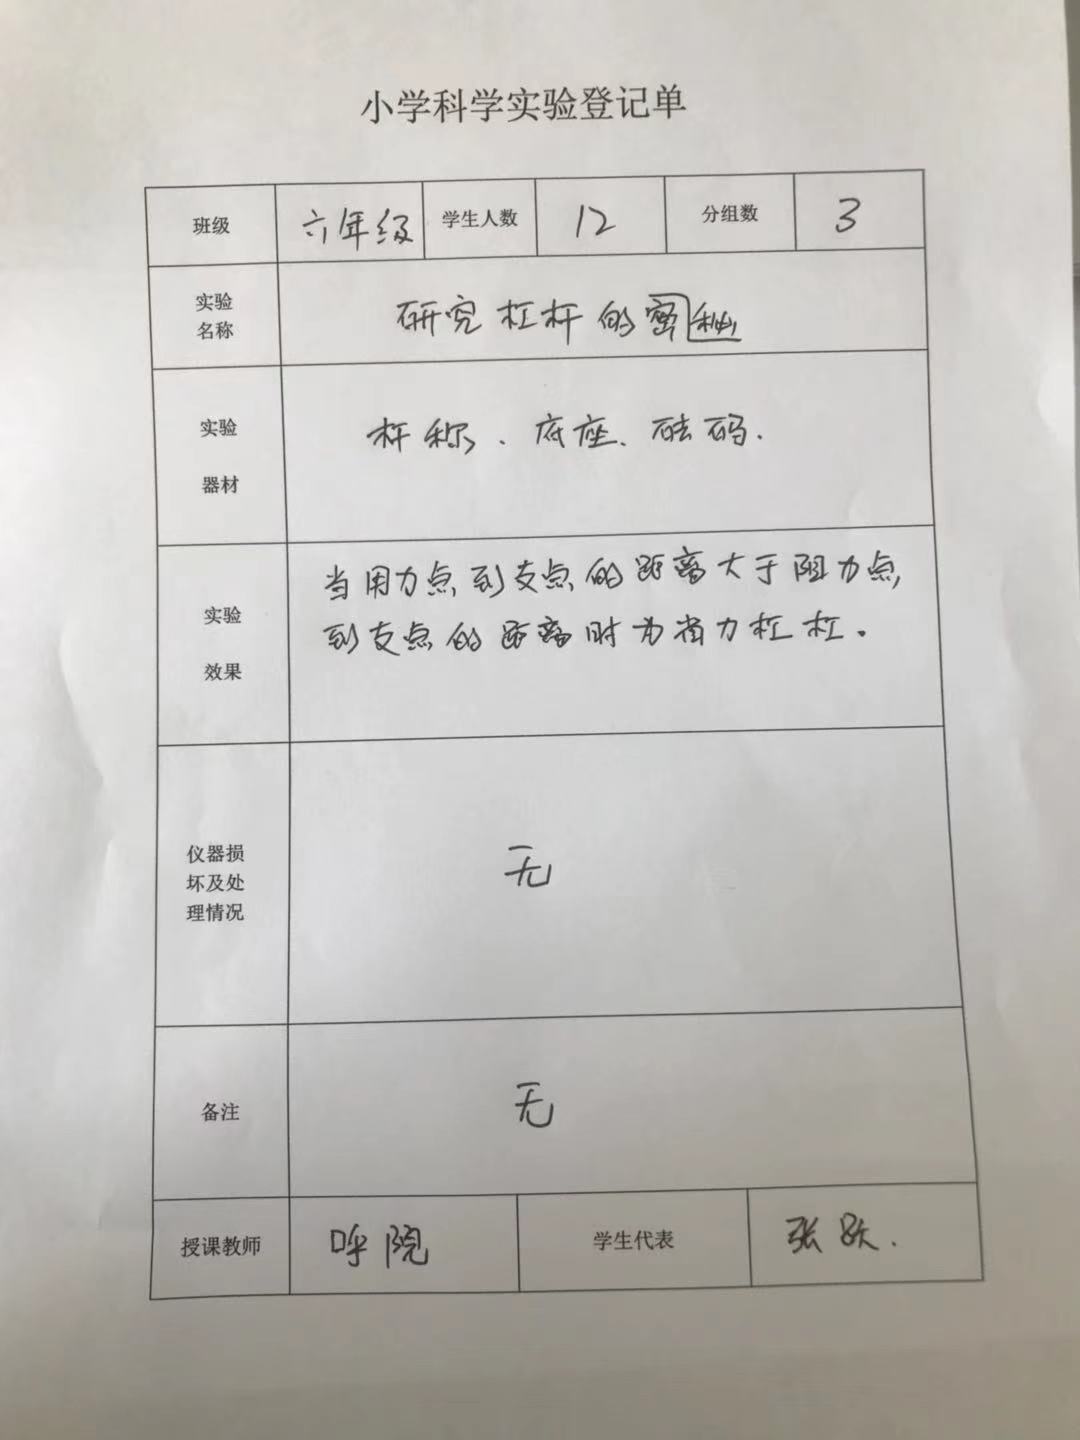 小学科学实验登记单
班级 六年级 学生人数 12 分组数 3
实验
名称
研究杠杆的密秘
实验
器材
杆称、底座、砝码.
实验
效果
当用力点到支点的距离大于阻力点,
到支点的距离时为省力杠杠。
仪器损
坏及处
理情况
无
备注
无
授课教师 呼院 学生代表 张跃.